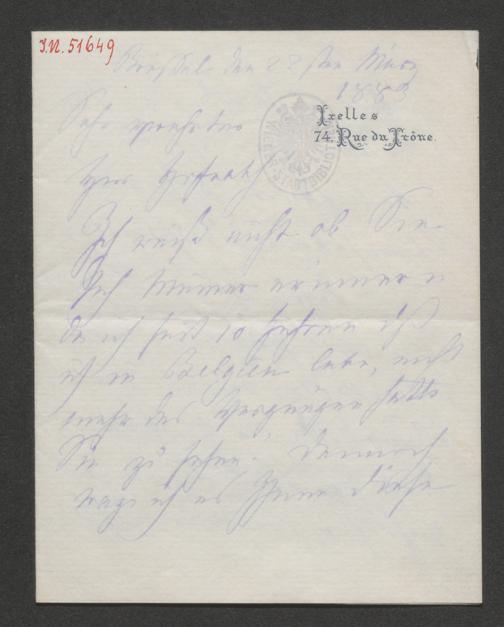 I.N. 51649
Brüssel den 28sten März
1883
Ixelles
74, Rue du Trône.
Sehr geehrter
Herr Hofrath
Ich weiß nicht ob Sie
Sich meiner erinnern
da ich seit 10 Jahren daß
ich in Belgien lebe, nicht
mehr das Vergnügen hatte
Sie zu sehen. Dennoch
wage ich es Ihnen diese